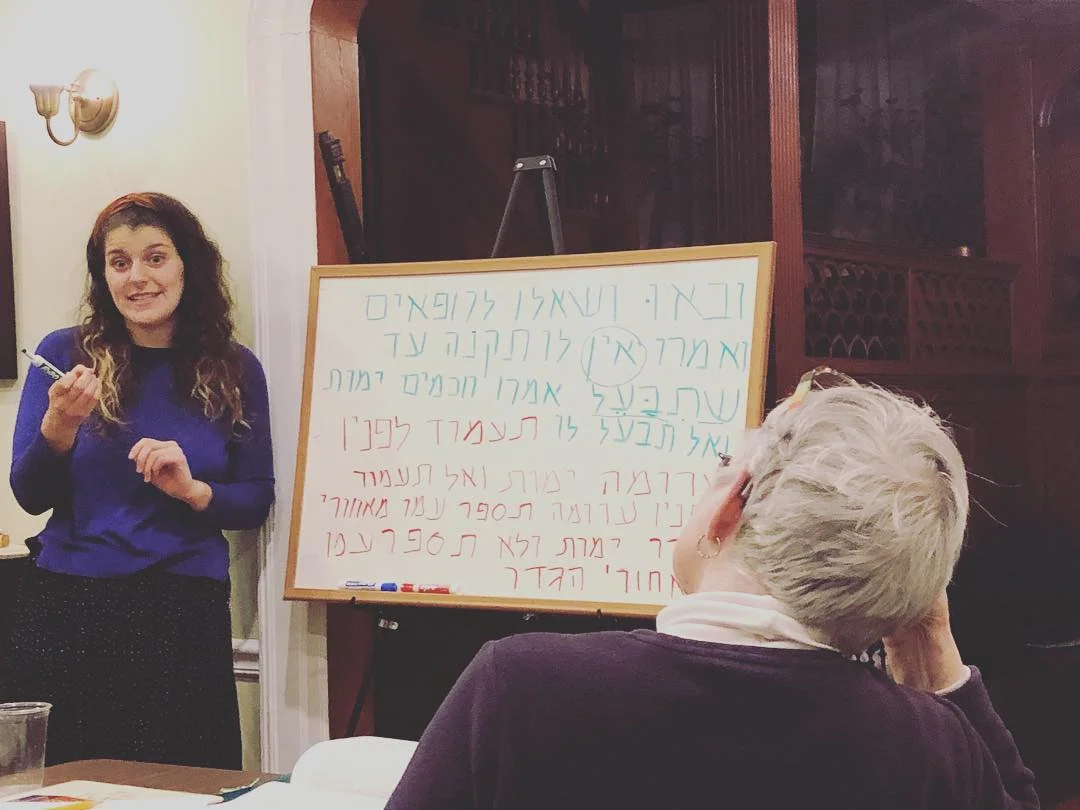 ובאו ושאלו לרופאים
ואמרו אין לו תקנה עד
שתִבָּעֵל אמרו חכמים ימות
ואל תבעל לו תעמוד לפנין
ערומה ימות ואל תעמוד
ערומה תספר עמו מאחורי
ימות ולא תספר עמו
מאחורי הגדר
EXPO